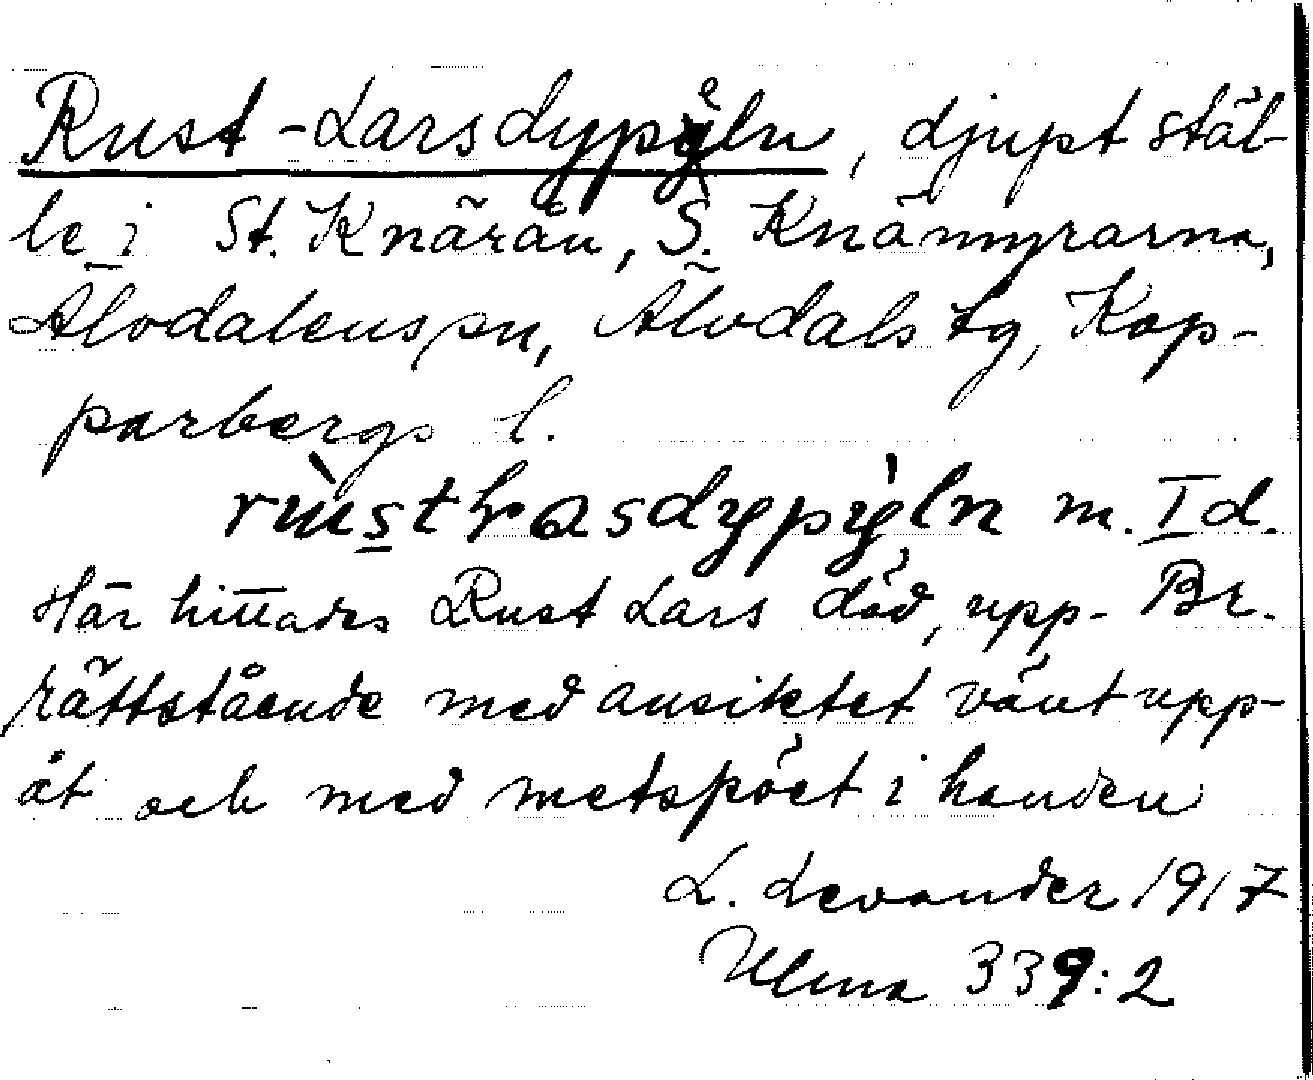 Rust-Larsdypeln, djupt stäl-
le i St. Knärån, S. Knämyrarna,
Älvdalens sn, Älvdals tg, Kop-
parbergs l.
m. I d.
Här hittades Rust Lars död, upp- Br.
rättstående med ansiktet vänt upp-
åt och med metspöet i handen
L. Levander 1917
Ulma 339:2